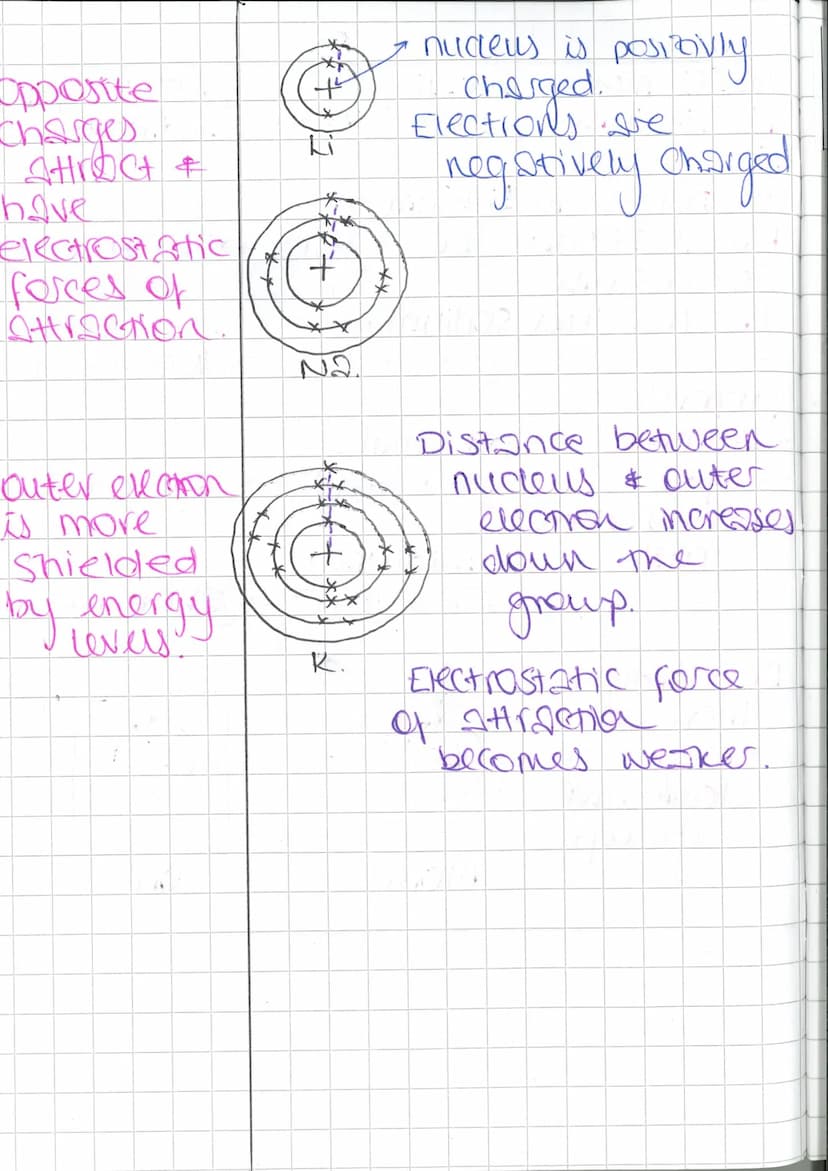 nucleus is positivly
charged.
Electrons are
negatively charged
Opposite
charges
attract &
have
electrostatic
forces of
attraction.
Li
Na.
Distance between
nucleus & outer
electron increases
down the
group.
outer electron
is more
shielded
by energy
levels.
K.
Electrostatic force
of attraction
becomes weaker.